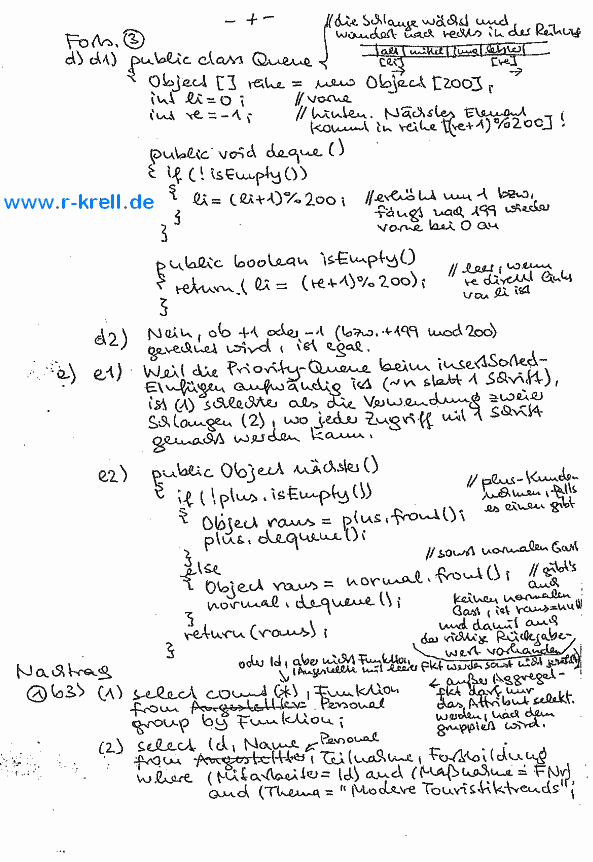 - 4 -
Forts. ③
//die Schlange wächst und
wandert nach rechts in der Reihung
d) d1) public class Queue
alt | mittel | jung | letzter
[li] [re]
{ Object [] reihe = new Object [200];
int li = 0; //vorne
int re = -1; //hinten. Nächstes Element
kommt in reihe [(re+1)%200]!
public void deque()
{ if (!isEmpty())
{ li = (li+1)%200; //erhöht um 1 bzw.
fängt nach 199 wieder
vorne bei 0 an
}
}
www.r-krell.de
public boolean isEmpty()
{ return (li = (re+1)%200); //leer, wenn
re direkt links
von li ist
}
d2) Nein, ob +1 oder -1 (bzw. +199 mod 200)
gerechnet wird, ist egal.
e) e1) Weil die Priority-Queue beim insertSorted-
Einfügen aufwändig ist (~n statt 1 Schritt),
ist (1) schlechter als die Verwendung zweier
Schlangen (2), wo jeder Zugriff mit 1 Schritt
gemacht werden kann.
e2) public Object nächster()
{ if (!plus.isEmpty()) //plus-Kunden
nehmen, falls
es einen gibt
{ Object raus = plus.front();
plus.dequeue();
}
else //sonst normalen Gast
{ Object raus = normal.front(); //gibt's
auch
normal.dequeue(); keinen normalen
Gast, ist raus=null
}
und damit auch
return (raus); der richtige Rückgabe-
wert vorhanden
}
Nachtrag
oder Id, aber nicht Funktion
(Angestellte mit leerer Fkt werden sonst nicht gezählt)
① b3) (1) select count(*), Funktion
← außer Aggregat-
fkt darf nur
from Angestellter Personal
das Attribut selekt.
group by Funktion;
werden, nach dem
gruppiert wird.
(2) select Id, Name Personal
from Angestellter, Teilnahme, Fortbildung
where (Mitarbeiter = Id) and (Maßnahme = FNr)
and (Thema = "Modere Touristiktrends";